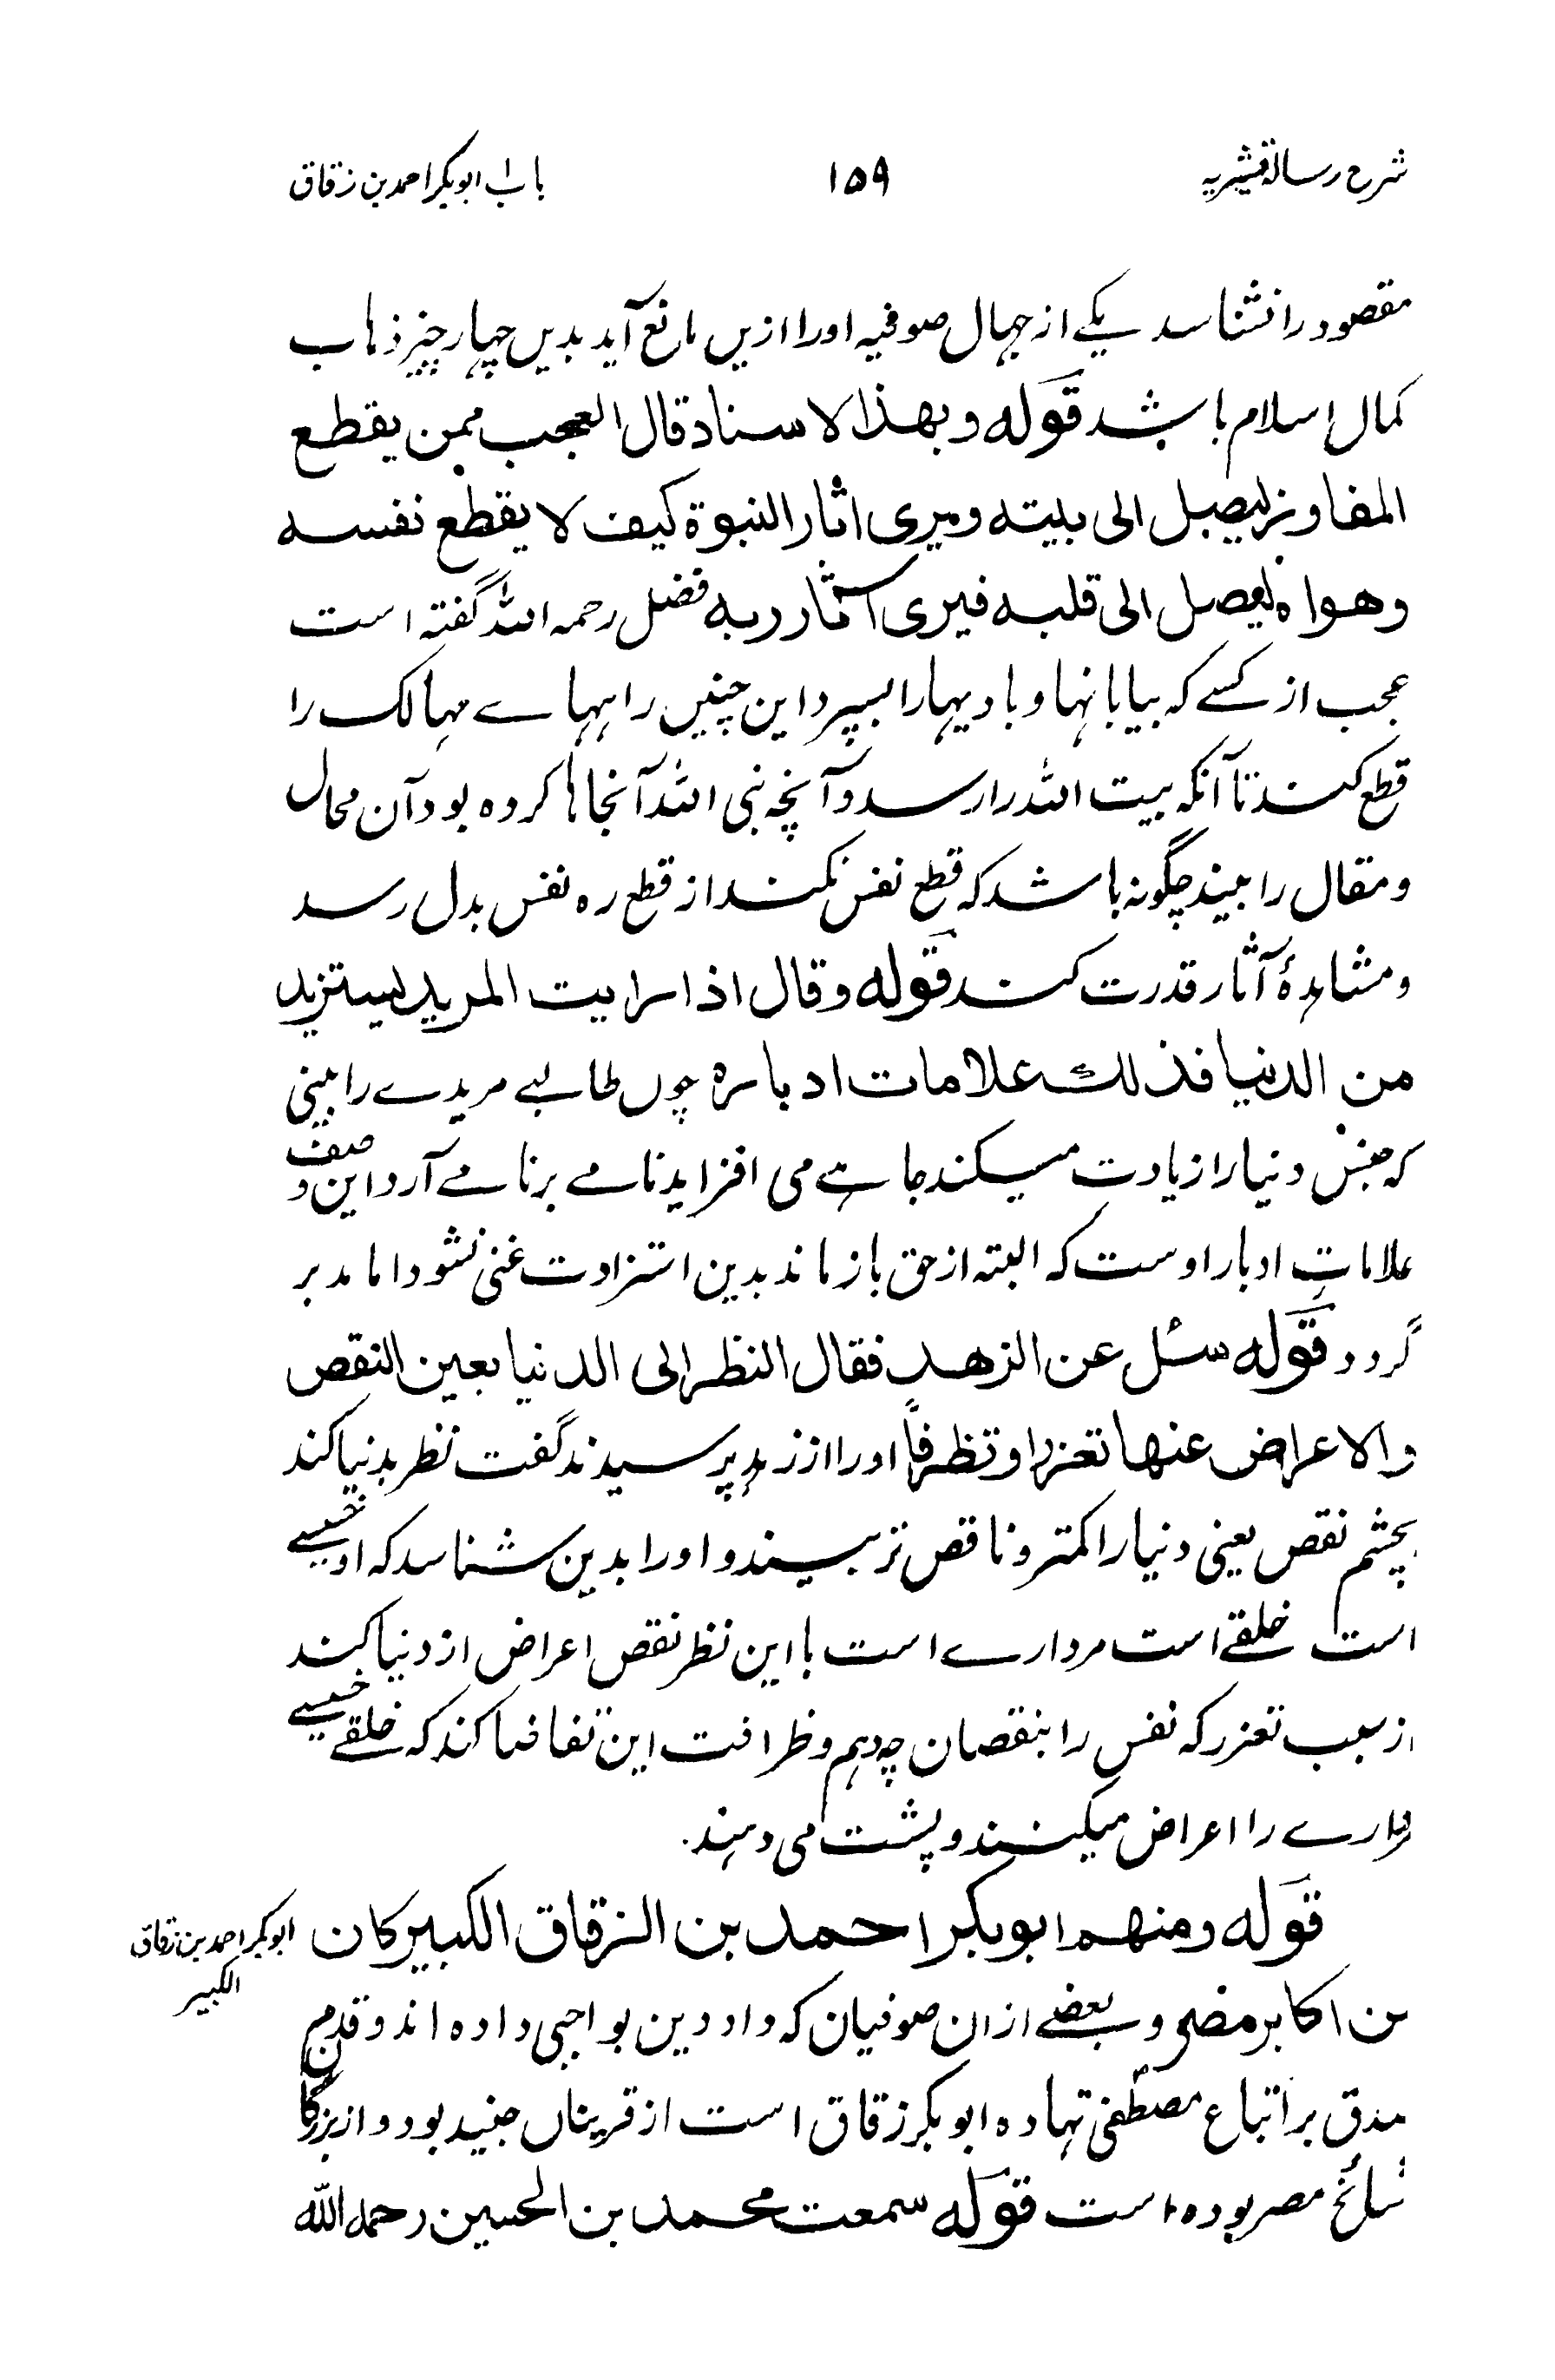 شرح رسالۂ قشیریہ
۱۵۹
باب ابوبکر احمد بن زقاق
مقصود را نشناسد یکے از جہال صوفیہ اورا ازیں مانع آید بدیں چہار چیز ذہاب
کمال اسلام باشد قوله وبهذا الاسناد قال العجب ممن يقطع
المفاوز ليصل الى بيته ويرى اثار النبوة كيف لا يقطع نفسه
وهواه ليصل الى قلبه فيرى آثار ربه فضل رحمہ اللہ گفتہ است
عجب از کسے کہ بیابانہا و بادیہا را بسپرد این چنیں راہہاے مہالک را
قطع کند تا آنکہ بیت اللہ را رسد و آنچہ نبی اللہ آنجاہا کردہ بود آن محال
و مقال را بیند چگونہ باشد کہ قطع نفس نکند از قطع رہ نفس بدل رسد
و مشاہدۂ آثار قدرت کند قوله وقال اذا رايت المريد يستزيد
من الدنيا فذلك علامات ادباره چوں طالبے مریدے را بینی
کہ جنس دنیا را زیادت میکند جاہے می افزاید نامے برنامے آرد این وصف
علامات ادبار اوست کہ البتہ از حق باز ماند بدین استزادت غنی نشود اما مدبر
گردد قوله سئل عن الزهد فقال النظر الى الدنيا بعين النقص
والاعراض عنها تعززا وتظرفاً اورا از زہد پرسیدند گفت نظر بدنیا کند
بچشم نقص یعنی دنیا را کمتر و ناقص تر بیند و اورا بدین شناسد کہ او خسیسے
است خلقے است مردارے است با این نظر نقص اعراض از دنیا کند
از سبب تعزر کہ نفس را بنقصان چہ دہم و ظرافت این تقاضا کند کہ خلقے خسیسے
را اعراض میکنند و پشت می دہند.
قوله ومنهم ابوبكر احمد بن الزقاق الكبير كان
من اكابر مصر و بعضے از ان صوفیان کہ داد دین بواجبی دادہ اند و قدم
صدق بر اتباع مصطفیٰ نہادہ ابوبکر زقاق است از قریناں جنید بود و از بزرگان
مشائخ مصر بودہ است قوله سمعت محمد بن الحسين رحمه الله
ابوبکر احمد بن زقاق
الکبیر